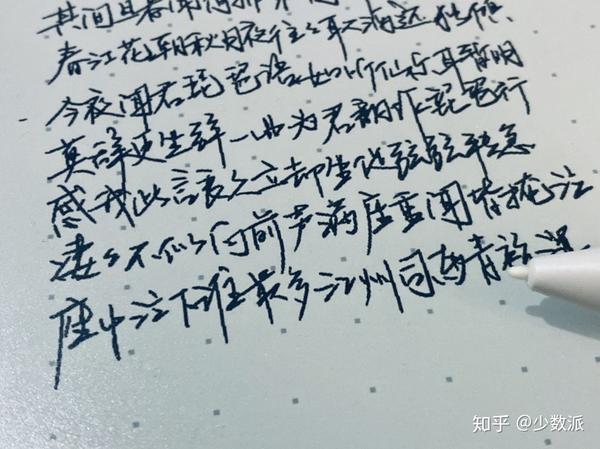 其间旦暮闻何物
春江花朝秋月夜往々取酒还独倾
今夜闻君琵琶语如听仙乐耳暂明
莫辞更坐弹一曲为君翻作琵琶行
感我此言良久立却坐促弦弦转急
凄々不似向前声满座重闻皆掩泣
座中泣下谁最多江州司马青衫湿
知乎 @少数派